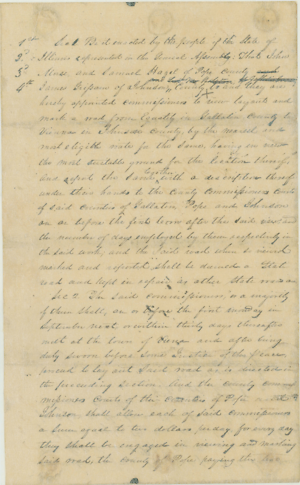 Sec 1 Be it enacted by the people of the State of
Illinois represented in the General Assembly, That John
and Samuel Hazel of Pope County and
James of Johnson County and they are
hereby appointed commissioners to view layout and
mark a road from Equality in Gallatin County to
Vienna in Johnson County, by the nearest and
most eligible route for the same having in view
the most suitable ground for the location thereof
and report the same with a description thereof
under their hands to the County Commissioners Courts
of said Counties of Gallatin Pope and Johnson
on or before the first term after the said view and
the number of days employed by them respectively in
the said work, and the said road when so viewed
marked and reported shall be deemed a State
road and kept in repair as other State roads are
Sec 2 The said commissioners, or a majority
of them shall, on or before the first monday in
September next or within thirty days thereafter
meet at the town of and after being
duly sworn before some Justice of the peace,
proceed to lay out said road as is described in
the preceding section. And the county comm
issioners Courts of the counties of Pope
Johnson, shall allow each of said Commissioners
a sum equal to two dollars per day for every day
they shall be engaged in viewing and marking
said road, the county of Pope paying the